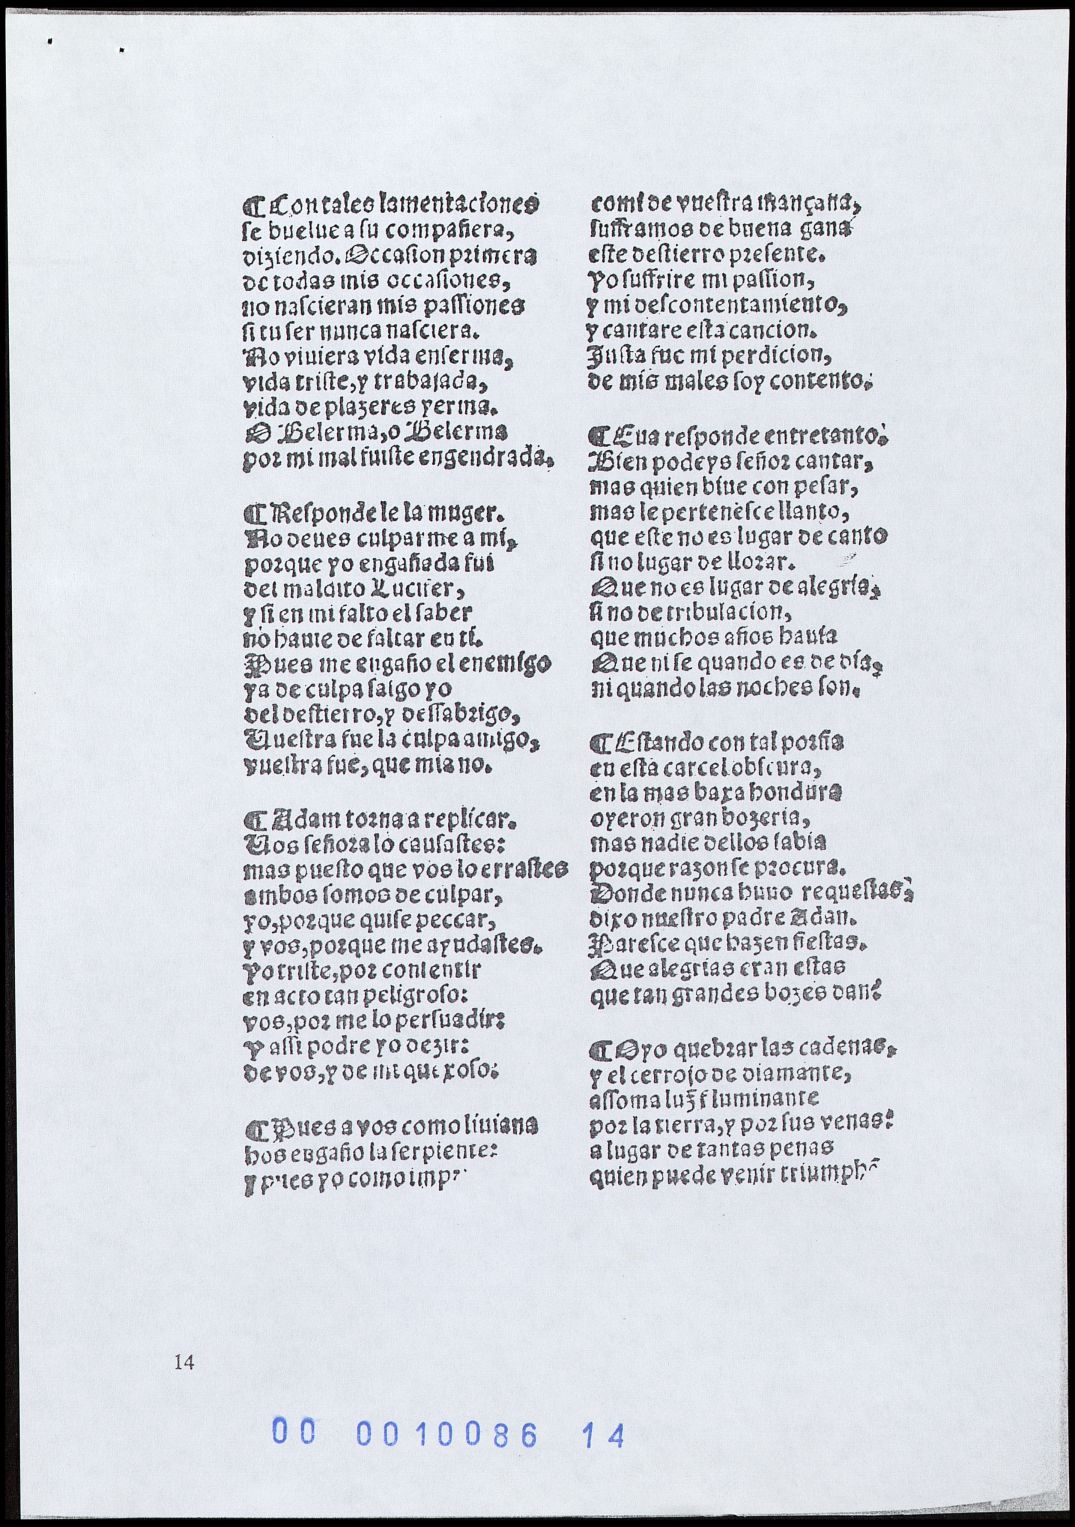 ¶ Con tales lamentaciones
se buelue a su compañera,
diziendo. Occasion primera
de todas mis occasiones,
no nascieran mis passiones
si tu ser nunca nasciera.
No viuiera vida enferma,
vida triste, y trabajada,
vida de plazeres yerma.
O Belerma, o Belerma
por mi mal fuiste engendrada.
¶ Respondele la muger.
No deues culparme a mi,
porque yo engañada fui
del maldito Lucifer,
y si en mi falto el saber
no hauie de faltar en ti.
Pues me engaño el enemigo
ya de culpa salgo yo
del destierro, y dessabrigo,
Vuestra fue la culpa amigo,
vuestra fue, que mia no.
¶ Adam torna a replicar.
Vos señora lo causastes:
mas puesto que vos lo errastes
ambos somos de culpar,
yo, porque quise peccar,
y vos, porque me ayudastes.
Yo triste, por consentir
en acto tan peligroso:
vos, por me lo persuadir:
Y assi podre yo dezir:
de vos, y de mi quexoso:
¶ Pues a vos como liuiana
hos engaño la serpiente:
y pues yo como
comi de vuestra mançana,
sufframos de buena gana
este destierro presente.
Yo suffrire mi passion,
y mi descontentamiento,
y cantare esta cancion.
Justa fue mi perdicion,
de mis males soy contento.
¶ Eua responde entretanto:
Bien podeys señor cantar,
mas quien biue con pesar,
mas le pertenesce llanto,
que este no es lugar de canto
sino lugar de llorar.
Que no es lugar de alegria,
sino de tribulacion,
que muchos años hauia
Que ni se quando es de dia,
ni quando las noches son.
¶ Estando con tal porfia
en esta carcel obscura,
en la mas baxa hondura
oyeron gran bozeria,
mas nadie dellos sabia
porque razon se procura.
Donde nunca huuo requestas,
dixo nuestro padre Adan.
Paresce que hazen fiestas.
Que alegrias eran estas
que tan grandes bozes dan?
¶ Oyo quebrar las cadenas,
y el cerrojo de diamante,
assoma luz illuminante
por la tierra, y por sus venas:
a lugar de tantas penas
quien puede venir
14
00 0010086 14